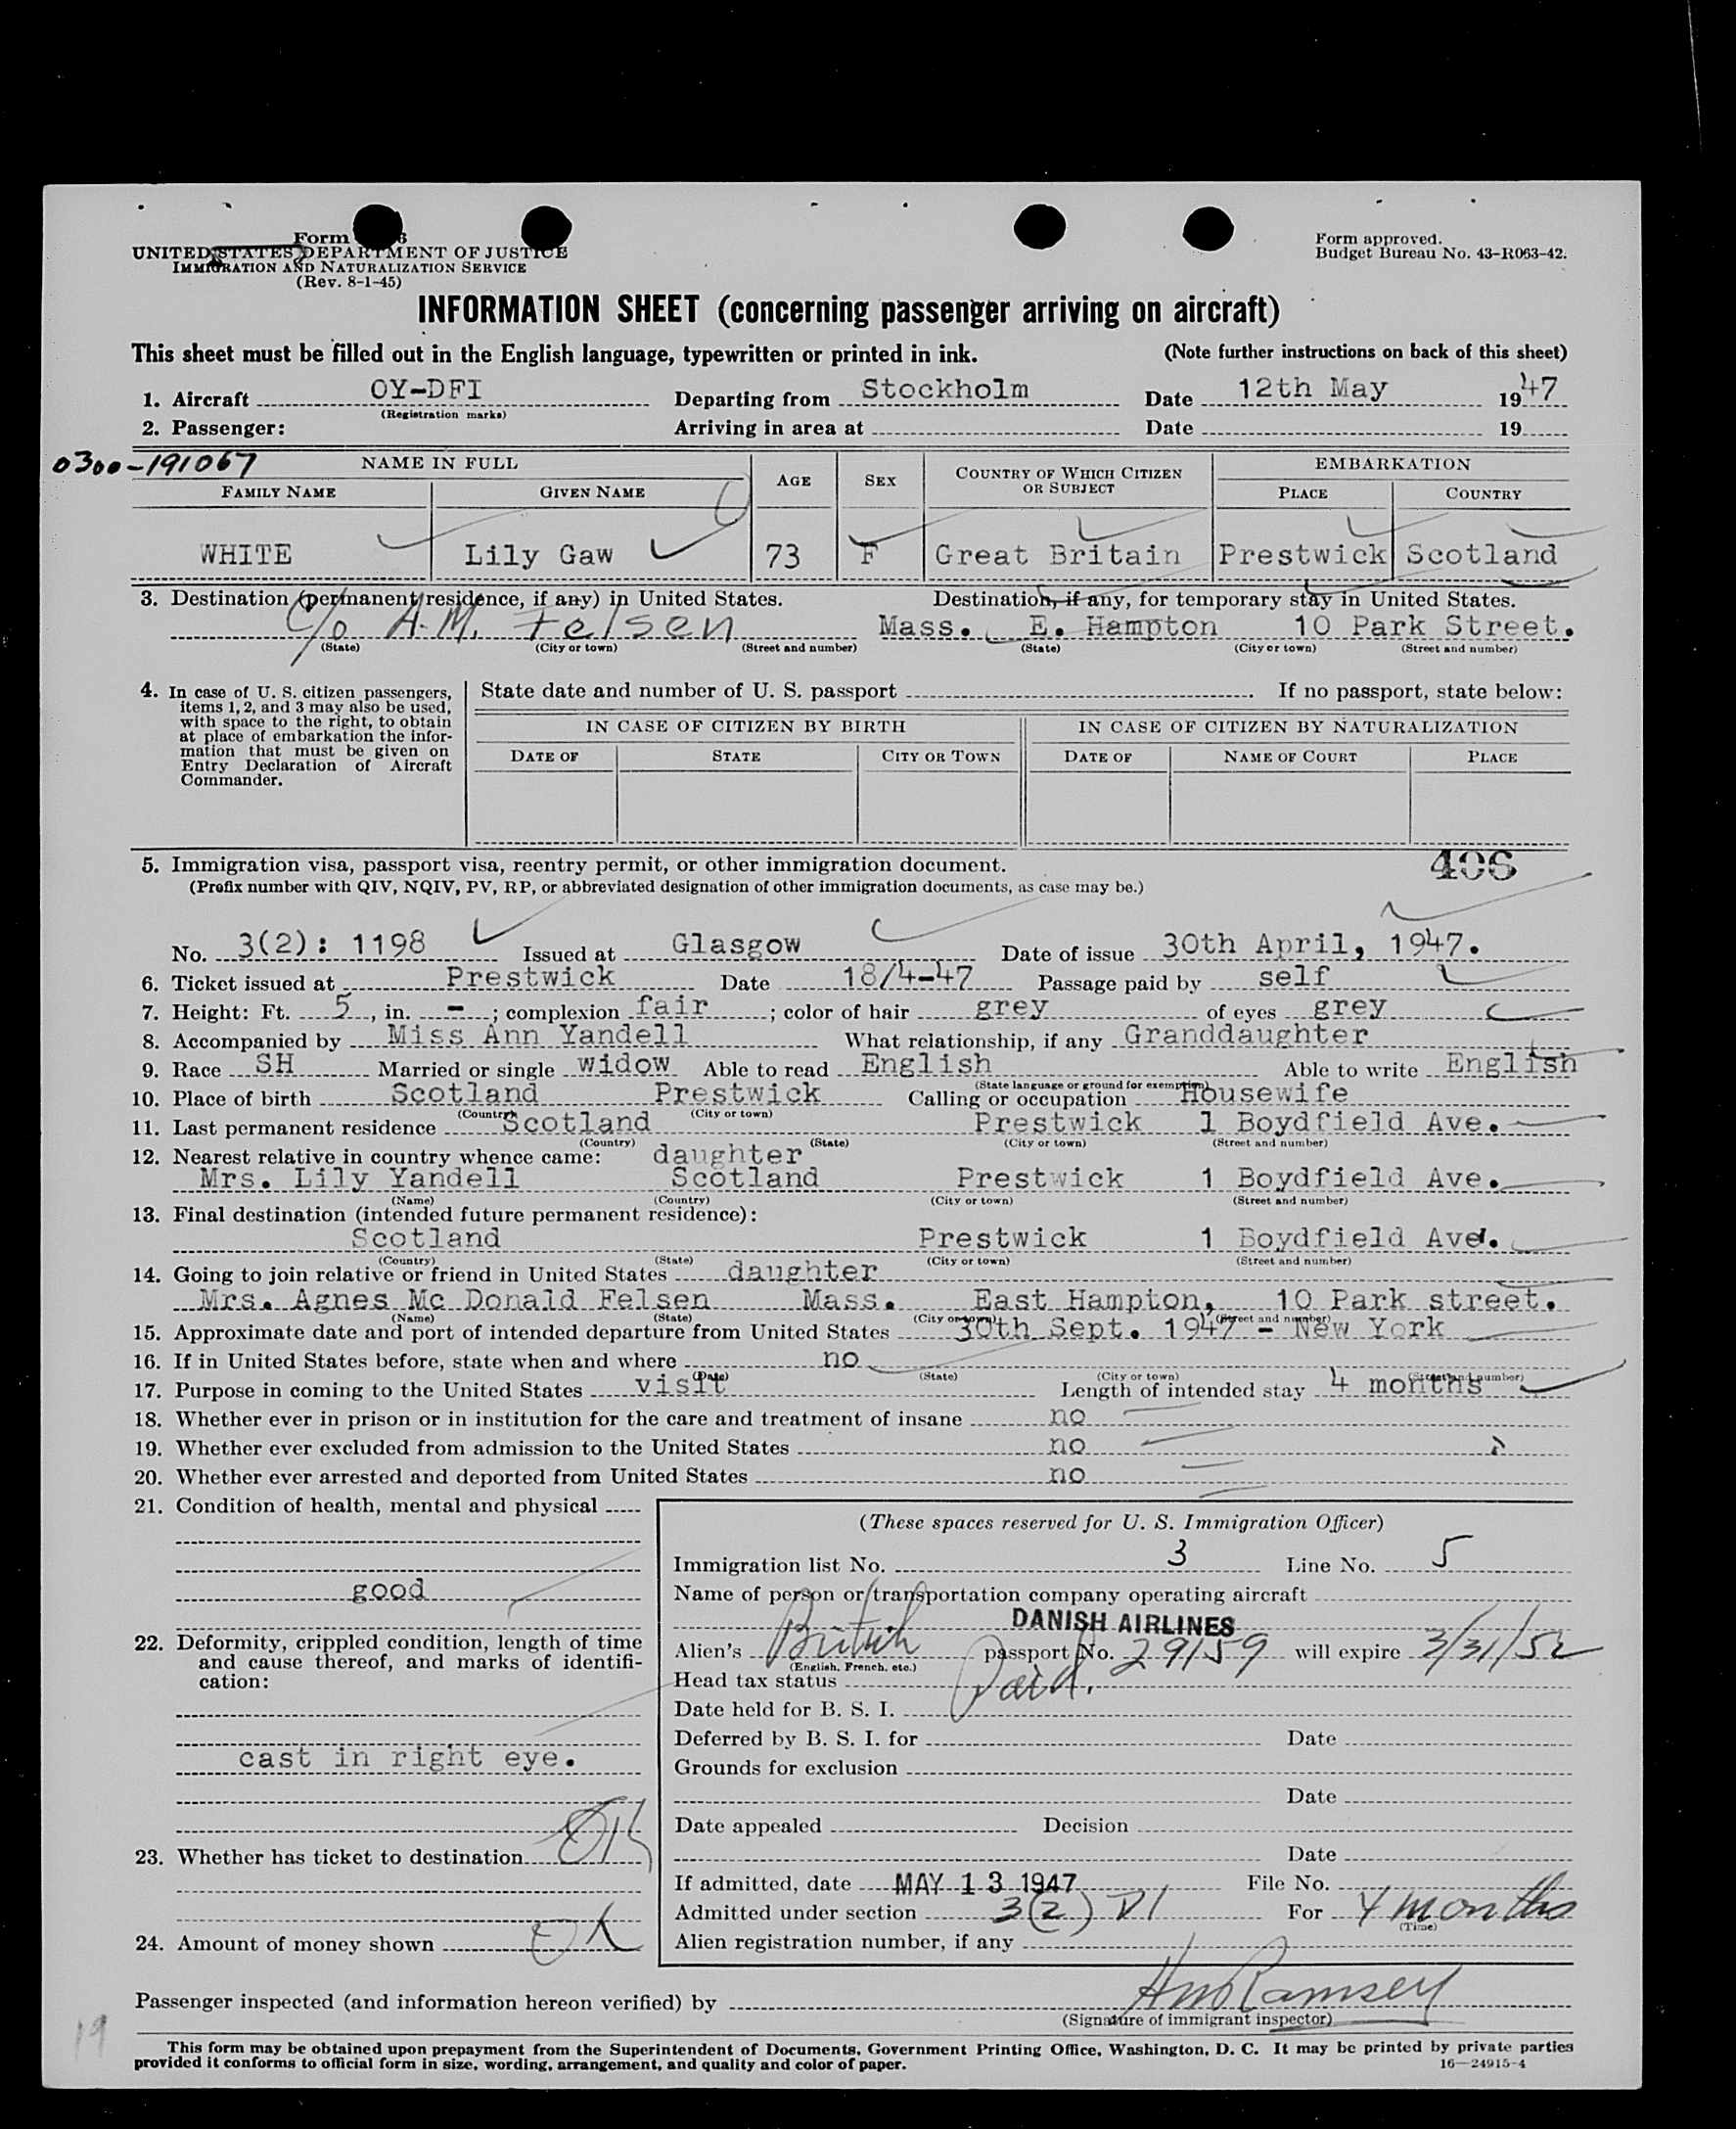 Form 6
UNITED STATES DEPARTMENT OF JUSTICE
IMMIGRATION AND NATURALIZATION SERVICE
(Rev. 8-1-45)
Form approved.
Budget Bureau No. 43-R063-42.
INFORMATION SHEET (concerning passenger arriving on aircraft)
This sheet must be filled out in the English language, typewritten or printed in ink. (Note further instructions on back of this sheet)
1. Aircraft OY-DFI Departing from Stockholm Date 12th May 1947
(Registration marks)
2. Passenger: Arriving in area at Date 19
0300-191067
NAME IN FULL AGE SEX COUNTRY OF WHICH CITIZEN OR SUBJECT EMBARKATION
FAMILY NAME GIVEN NAME PLACE COUNTRY
WHITE Lily Gaw 73 F Great Britain Prestwick Scotland
3. Destination (permanent residence, if any) in United States. Destination, if any, for temporary stay in United States.
c/o A.M. Felsen Mass. E. Hampton 10 Park Street.
(State) (City or town) (Street and number) (State) (City or town) (Street and number)
4. In case of U. S. citizen passengers, items 1, 2, and 3 may also be used, with space to the right, to obtain at place of embarkation the information that must be given on Entry Declaration of Aircraft Commander.
State date and number of U. S. passport If no passport, state below:
IN CASE OF CITIZEN BY BIRTH IN CASE OF CITIZEN BY NATURALIZATION
DATE OF STATE CITY OR TOWN DATE OF NAME OF COURT PLACE
406
5. Immigration visa, passport visa, reentry permit, or other immigration document.
(Prefix number with QIV, NQIV, PV, RP, or abbreviated designation of other immigration documents, as case may be.)
No. 3(2): 1198 Issued at Glasgow Date of issue 30th April, 1947.
6. Ticket issued at Prestwick Date 18/4-47 Passage paid by self
7. Height: Ft. 5, in. -; complexion fair; color of hair grey of eyes grey
8. Accompanied by Miss Ann Yandell What relationship, if any Granddaughter
9. Race SH Married or single widow Able to read English Able to write English
(State language or ground for exemption)
10. Place of birth Scotland Prestwick Calling or occupation Housewife
(Country) (City or town)
11. Last permanent residence Scotland Prestwick 1 Boydfield Ave.
(Country) (State) (City or town) (Street and number)
12. Nearest relative in country whence came: daughter
Mrs. Lily Yandell Scotland Prestwick 1 Boydfield Ave.
(Name) (Country) (City or town) (Street and number)
13. Final destination (intended future permanent residence):
Scotland Prestwick 1 Boydfield Ave.
(Country) (State) (City or town) (Street and number)
14. Going to join relative or friend in United States daughter
Mrs. Agnes Mc Donald Felsen Mass. East Hampton, 10 Park street.
(Name) (State) (City or town) (Street and number)
15. Approximate date and port of intended departure from United States 30th Sept. 1947 - New York
16. If in United States before, state when and where no
(Date) (State) (City or town) (Street and number)
17. Purpose in coming to the United States visit Length of intended stay 4 months
18. Whether ever in prison or in institution for the care and treatment of insane no
19. Whether ever excluded from admission to the United States no
20. Whether ever arrested and deported from United States no
21. Condition of health, mental and physical
good
22. Deformity, crippled condition, length of time and cause thereof, and marks of identification:
cast in right eye.
23. Whether has ticket to destination OK
24. Amount of money shown OK
(These spaces reserved for U. S. Immigration Officer)
Immigration list No. 3 Line No. 5
Name of person or transportation company operating aircraft
DANISH AIRLINES
Alien's British passport No. 29159 will expire 3/31/52
(English, French, etc.)
Head tax status Paid.
Date held for B. S. I.
Deferred by B. S. I. for Date
Grounds for exclusion
Date
Date appealed Decision
Date
If admitted, date MAY 13 1947 File No.
Admitted under section 3(2) For 4 months
(Time)
Alien registration number, if any
Passenger inspected (and information hereon verified) by Ramsey
(Signature of immigrant inspector)
19
This form may be obtained upon prepayment from the Superintendent of Documents, Government Printing Office, Washington, D. C. It may be printed by private parties
provided it conforms to official form in size, wording, arrangement, and quality and color of paper. 16—24915-4